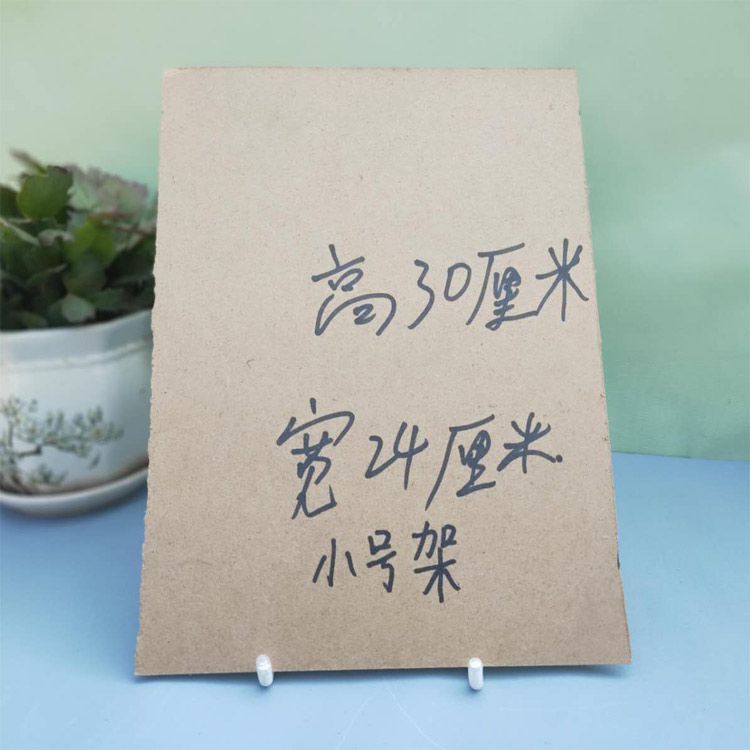 高30厘米
宽24厘米.
小号架